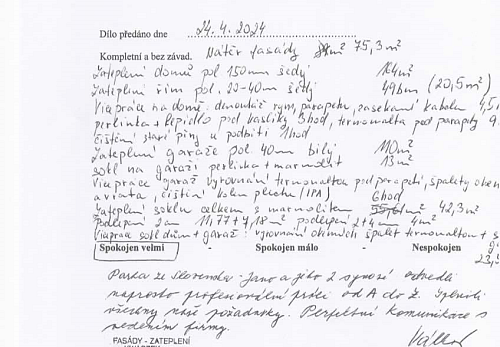 Dílo předáno dne 24.4.2024
Kompletní a bez závad. Nátěr fasády m² 75,3m²
Zateplení domů pol 150mm šedý 164m²
Zateplení řím pol. 20-40m šedý 49bm (20,5m²)
Víapráce na domě. demontáž rýny, parapetu, zasekání kabelu 4,5
perlinka + lepidlo pod kastlíky 3hod, termomalta pod parapety 9
čištění staré pěny u podbití 1hod
Zateplení garáže pol 40m bílý 110m²
sokl na garáži perlinka + marmolit 13m²
Víapráce garáž vyrovnání termomaltou pod parapetí, špalety oken
a vrata, čištění kolem plechu (1M) 6hod
Zateplení soklu celkem s marmolitem 42,3m²
Podlepení 2cm 11,77+4,18m² podlepení 2+4m 4m²
Víapráce sokl dům + garáž: vyrovnání okenních špalet termomaltou + s
23,5
Spokojen velmi - Spokojen málo Nespokojen
Parta ze Slovenska - Jano a jeho 2 synové odvedli
naprosto profesionální práci od A do Z. Splnili
všechny naše požadavky. Perfektní komunikace s
vedením firmy.
FASÁDY - ZATEPLENÍ